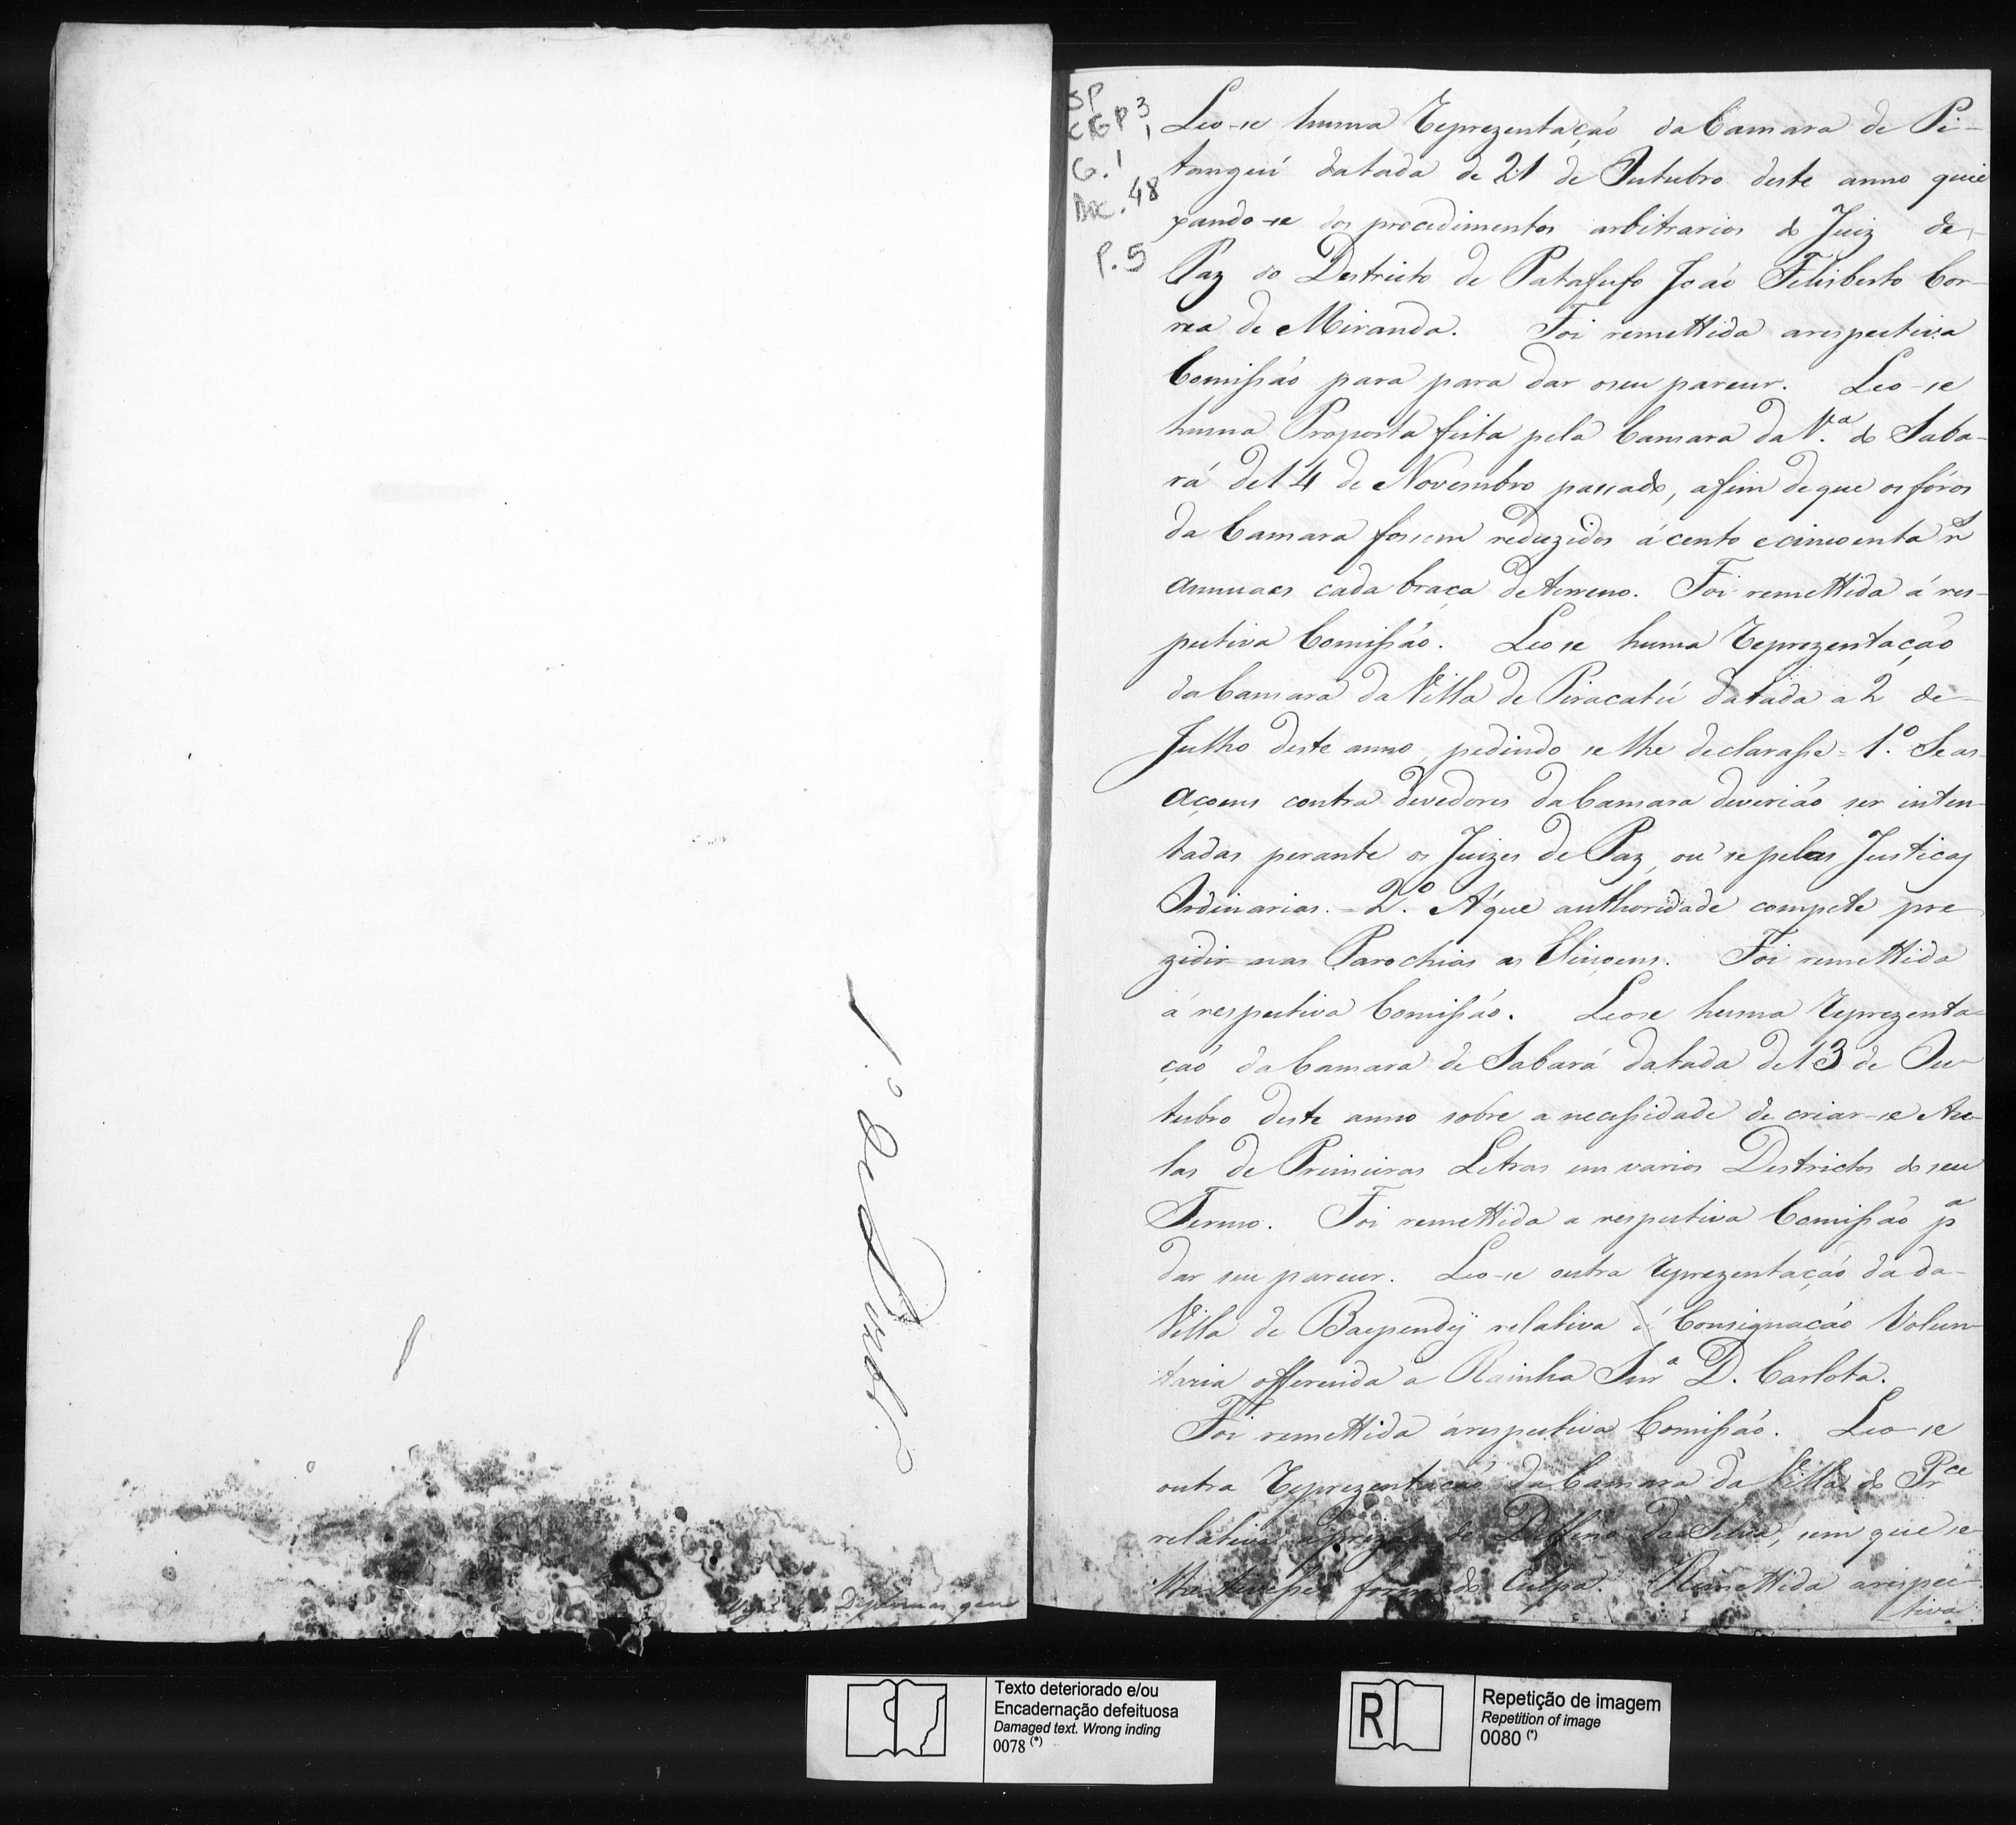 1.º de Dezbr.º
Diplomas que
SP
CGP 3,
G.1
Doc. 48
P.5
Leo-se huma Reprezentação da Camara de Pi-
tangui datada de 21 de Outubro deste anno quei
xando-se dos procedimentos arbitrarios do Juiz de
Paz do Destricto de Patafufo João Felisberto Cor-
rea de Miranda. Foi remettida arespectiva
Comissão para para dar oseu parecer. Leo-se
huma Proposta feita pela Camara da V.ª do Saba-
rá de 14 de Novembro passado, afim de que os fóros
da Camara fossem reduzidos á cento ecincoenta r.s
annuaes cada braça deterreno. Foi remettida á res-
pectiva Comissão. Leose huma Reprezentação
da Camara da Villa de Paracatú datada a 2 de
Julho deste anno, pedindo se lhe declarasse = 1.º Se as
Açoens contra devedores da Camara deverião ser inten-
tadas perante os Juizes de Paz, ou se pelas Justiças
Ordinarias. = 2.º A'que authoridade compete pre
zidir nas Parochias as Eleiçoens. Foi remettida
á respectiva Comissão. Leose huma Reprezenta-
ção da Camara de Sabará datada de 13 de Ou-
tubro deste anno sobre a necessidade de criar-se Au-
las de Primeiras Letras em varios Destrictos do seu
Termo. Foi remettida a respectiva Comissão p.ª
dar seu parecer. Leo-se outra Reprezentação da da
Villa de Baependÿ relativa á Consignação Volun-
taria offerecida a Rainha Snr.ª D. Carlota.
Foi remettida árespectiva Comissão. Leo-se
outra Reprezentação da Camara da Villa do Pr.ce
relativa aprizão de Delfino da Silva, sem que se
lhe tivesse formado Culpa. Remettida arespec-
tiva
Texto deteriorado e/ou
Encadernação defeituosa
Damaged text. Wrong inding
0078 (*)
R
Repetição de imagem
Repetition of image
0080 (*)